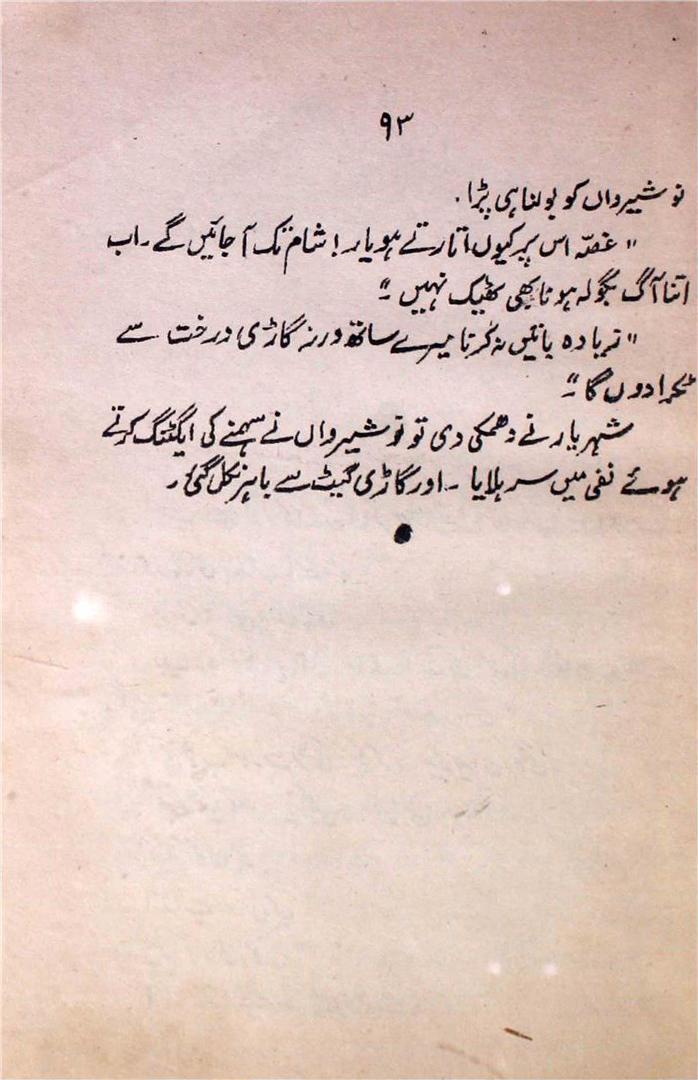 ۹۳
نوشیرواں کو بولنا ہی پڑا۔
" غصّہ اس پر کیوں اتارتے ہو یار! شام تک آ جائیں گے۔ اب
اتنا آگ بگولہ ہونا بھی ٹھیک نہیں "۔
" زیادہ باتیں نہ کرنا میرے ساتھ ورنہ گاڑی درخت سے
ٹکرا دوں گا "۔
شہریار نے دھمکی دی تو نوشیرواں نے سہمنے کی ایکٹنگ کرتے
ہوئے نفی میں سر ہلایا ۔ اور گاڑی گیٹ سے باہر نکل گئی۔